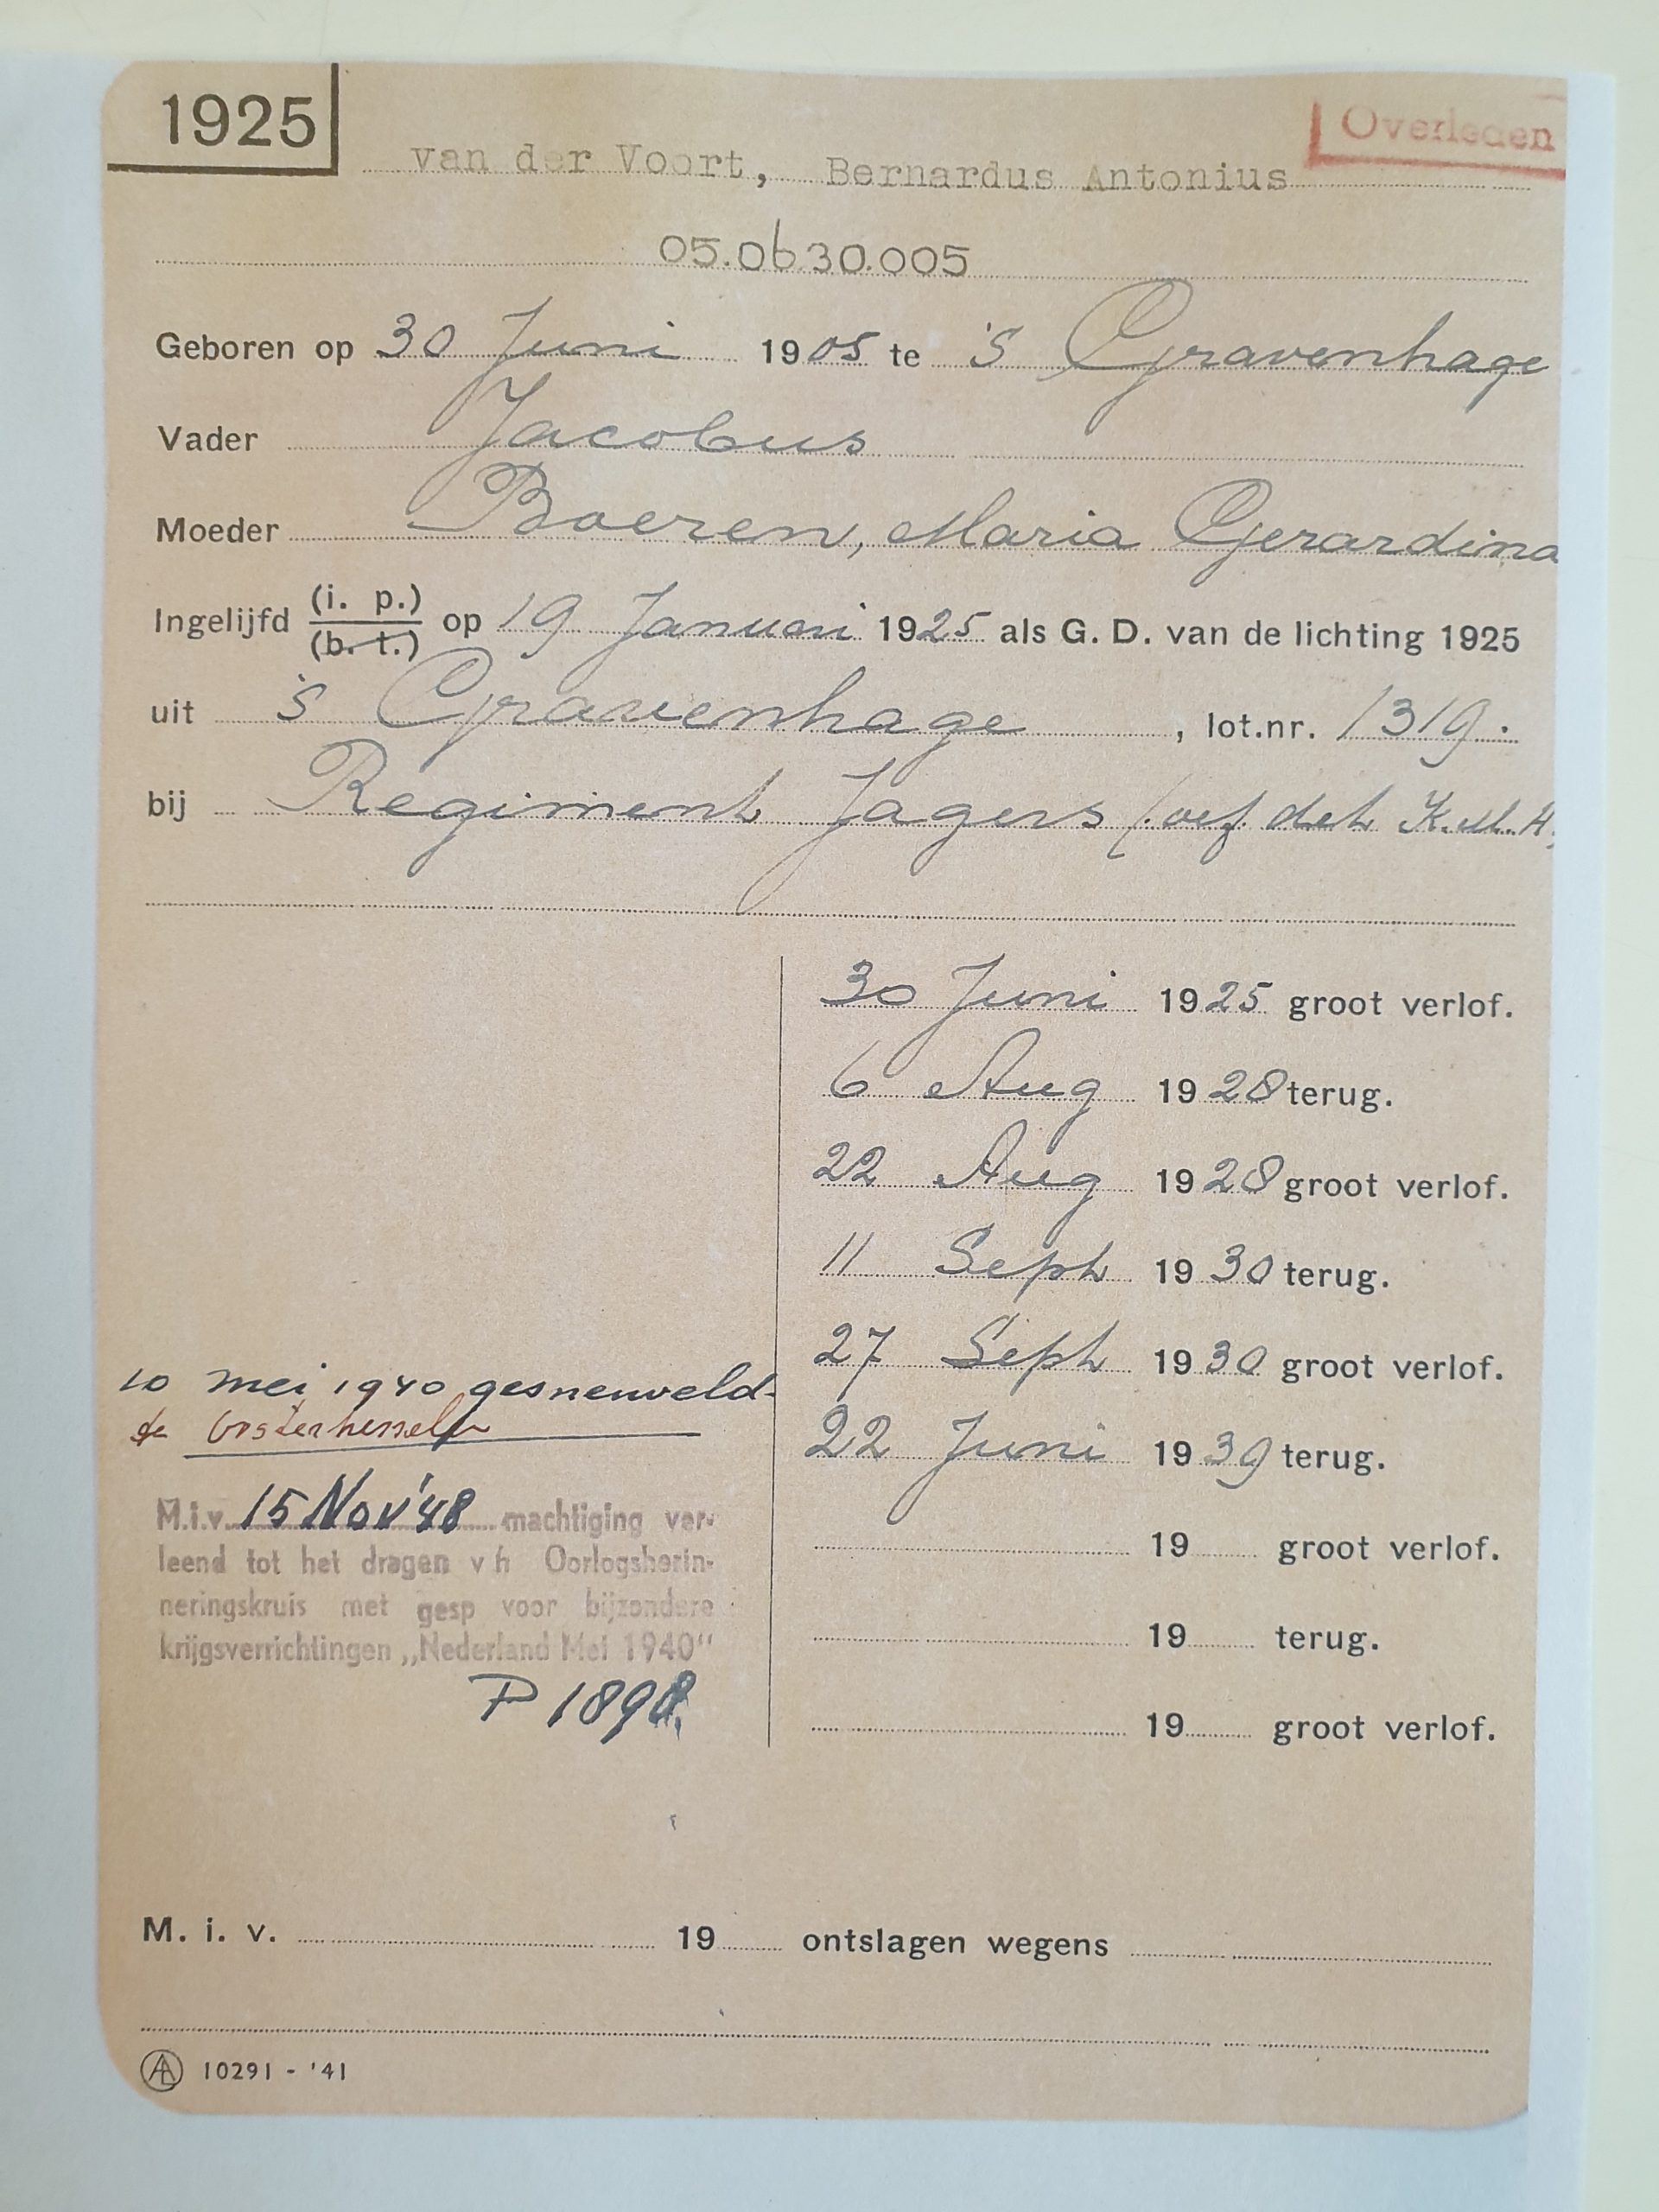 1925
Overleden
van der Voort, Bernardus Antonius
05.0630.005
Geboren op 30 Juni 1905 te 's Gravenhage
Vader Jacobus
Moeder Boeren, Maria Gerardina
Ingelijfd (i. p.) (b. t.) op 19 Januari 1925 als G. D. van de lichting 1925
uit 's Gravenhage, lot.nr. 1319.
bij Regiment Jagers (. oef. det K.M.A.
30 Juni 1925 groot verlof.
6 Aug 1928 terug.
22 Aug 1928 groot verlof.
11 Sept 1930 terug.
27 Sept 1930 groot verlof.
22 Juni 1939 terug.
19 groot verlof.
19 terug.
19 groot verlof.
10 mei 1940 gesneuveld
te Oosterhesselen
M.i.v. 15 Nov '48 machtiging ver-
leend tot het dragen v h Oorlogsherin-
neringskruis met gesp voor bijzondere
krijgsverrichtingen „Nederland Mei 1940"
P
M. i. v. 19 ontslagen wegens
AL 10291 - '41